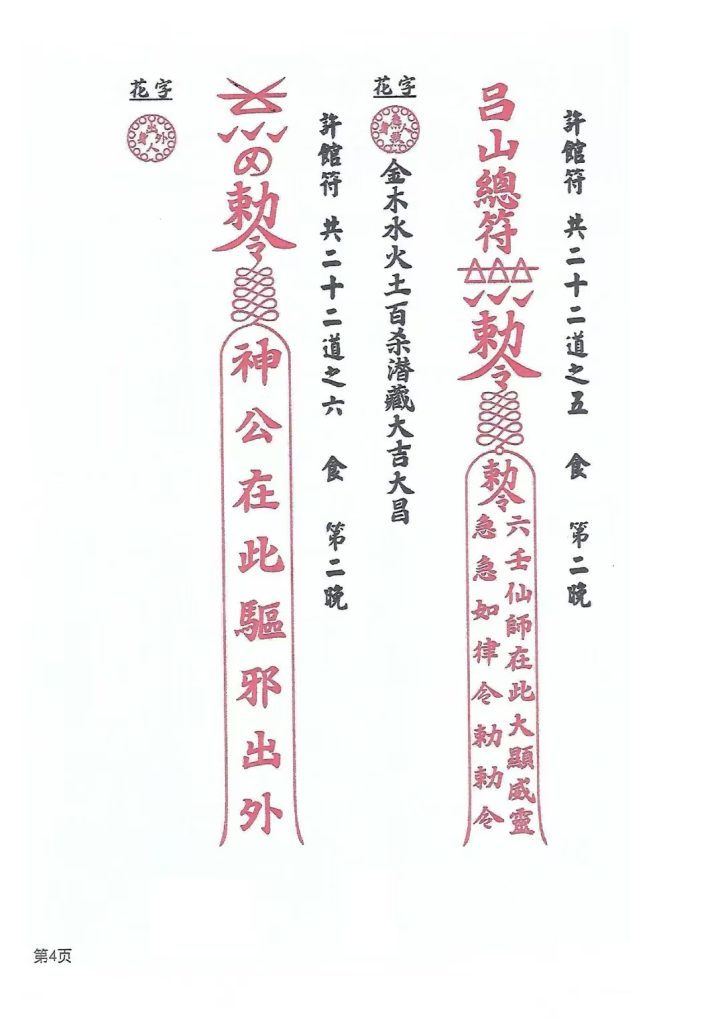 許館符 共二十二道之五 食 第二晚
呂山總符
勅令
勅令
六壬仙師在此大顯威靈
急急如律令勅勅令
花字
金木水火土百杀潜藏大吉大昌
許館符 共二十二道之六 食 第二晚
勅令
神公在此驅邪出外
花字
第4页